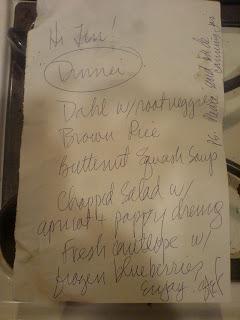 Hi Jen!
Dinner
Dahl w/ root veggies
Brown Rice
Butternut Squash Soup
Chopped Salad w/
apricot + poppy dressing
Fresh Cantelope w/
frozen blueberries
Enjoy!
P.S. Please